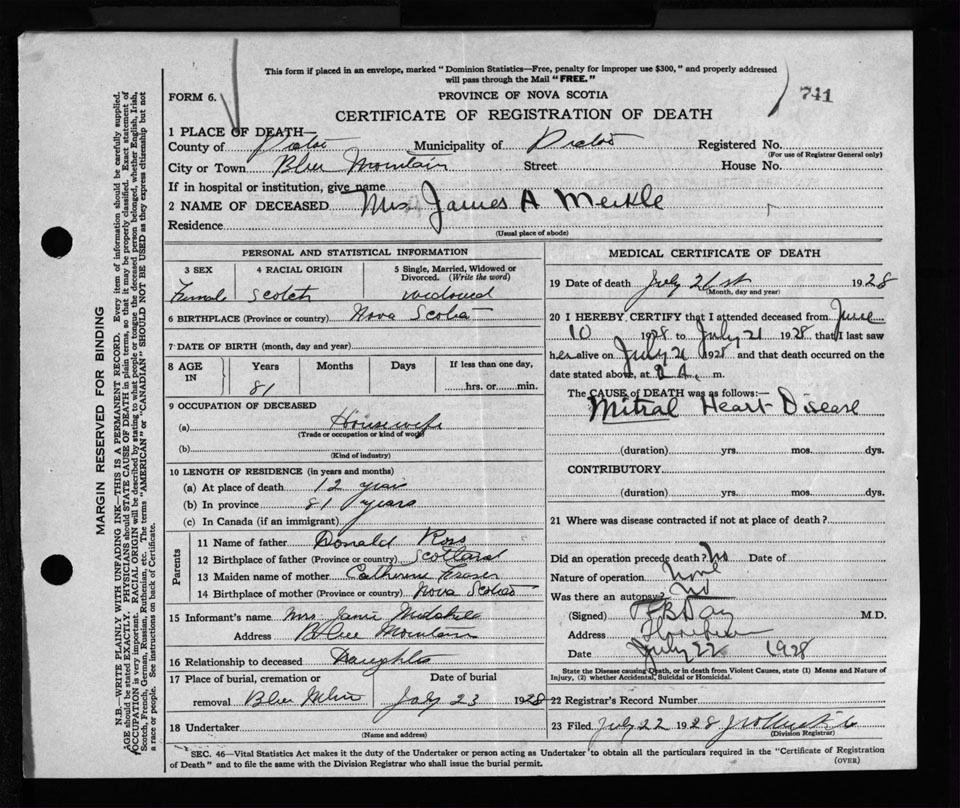 This form if placed in an envelope, marked "Dominion Statistics—Free, penalty for improper use $300," and properly addressed
will pass through the Mail "FREE."
FORM 6.
PROVINCE OF NOVA SCOTIA
741
CERTIFICATE OF REGISTRATION OF DEATH
1 PLACE OF DEATH—
County of Pictou Municipality of Pictou Registered No.
(For use of Registrar General only)
City or Town Blue Mountain Street House No.
If in hospital or institution, give name
2 NAME OF DECEASED Mrs James A Meikle
Residence
(Usual place of abode)
PERSONAL AND STATISTICAL INFORMATION
3 SEX 4 RACIAL ORIGIN 5 Single, Married, Widowed or Divorced. (Write the word)
Female Scotch widowed
6 BIRTHPLACE (Province or country) Nova Scotia
7 DATE OF BIRTH (month, day and year)
8 AGE IN Years Months Days If less than one day,
81 hrs. or min.
9 OCCUPATION OF DECEASED
(a) Housewife
(Trade or occupation or kind of work)
(b)
(Kind of industry)
10 LENGTH OF RESIDENCE (in years and months)
(a) At place of death 12 years
(b) In province 81 years
(c) In Canada (if an immigrant)
Parents
11 Name of father Donald Ross
12 Birthplace of father (Province or country) Scotland
13 Maiden name of mother Catherine Fraser
14 Birthplace of mother (Province or country) Nova Scotia
15 Informant's name Mrs
Address Blue Mountain
16 Relationship to deceased Daughter
17 Place of burial, cremation or Date of burial
removal Blue Mtn July 23 1928
18 Undertaker
(Name and address)
MEDICAL CERTIFICATE OF DEATH
19 Date of death July 21st 1928
(Month, day and year)
20 I HEREBY CERTIFY that I attended deceased from June
10 1928 to July 21 1928 that I last saw
her alive on July 21 1928 and that death occurred on the
date stated above, at m.
The CAUSE of DEATH was as follows:—
Mitral Heart Disease
(duration) yrs. mos. dys.
CONTRIBUTORY
(duration) yrs. mos. dys.
21 Where was disease contracted if not at place of death?
Did an operation precede death? No Date of
Nature of operation None
Was there an autopsy? No
(Signed) Day M.D.
Address
Date July 22 1928
State the Disease causing Death, or in death from Violent Causes, state (1) Means and Nature of
Injury, (2) whether Accidental, Suicidal or Homicidal.
22 Registrar's Record Number
23 Filed July 22 1928
(Division Registrar)
SEC. 46—Vital Statistics Act makes it the duty of the Undertaker or person acting as Undertaker to obtain all the particulars required in the "Certificate of Registration
of Death" and to file the same with the Division Registrar who shall issue the burial permit.
(OVER)
MARGIN RESERVED FOR BINDING
N.B.—WRITE PLAINLY WITH UNFADING INK—THIS IS A PERMANENT RECORD. Every item of information should be carefully supplied.
AGE should be stated EXACTLY. PHYSICIANS should STATE CAUSE OF DEATH in plain terms, so that it may be properly classified. Exact statement of
OCCUPATION is very important. RACIAL ORIGIN will be described by stating to what people or tongue the deceased person belonged, whether English, Irish,
Scotch, French, German, Russian, Ruthenian, etc. The terms "AMERICAN" or "CANADIAN" SHOULD NOT BE USED as they express citizenship but not
race or people. See instructions on back of Certificate.